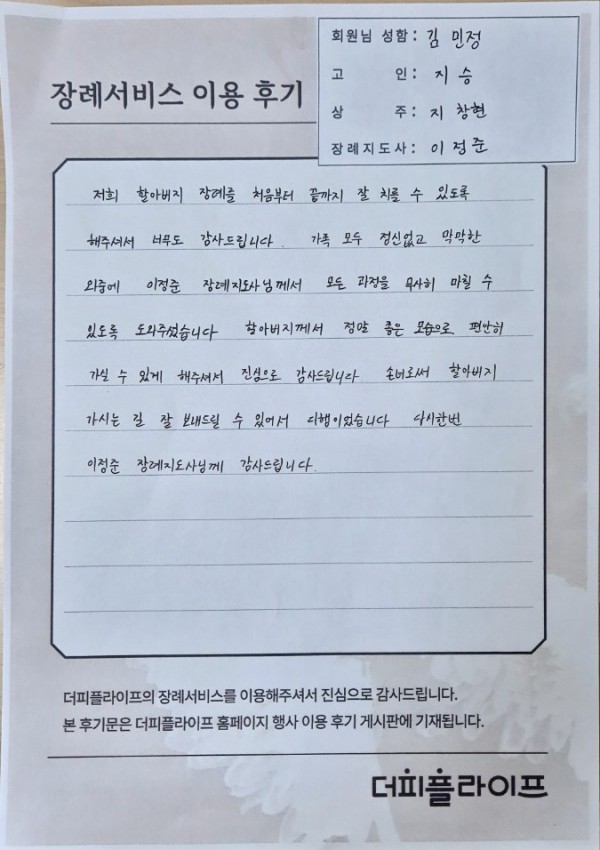 장례서비스 이용 후기
회원님 성함 : 김 민정
고 인 : 지 승
상 주 : 지 창현
장례지도사 : 이 정준
저희 할아버지 장례를 처음부터 끝까지 잘 치를 수 있도록
해주셔서 너무도 감사드립니다. 가족 모두 정신없고 막막한
와중에 이정준 장례지도사님께서 모든 과정을 무사히 마칠 수
있도록 도와주셨습니다 할아버지께서 정말 좋은 모습으로 편안히
가실 수 있게 해주셔서 진심으로 감사드립니다 손녀로써 할아버지
가시는 길 잘 보내드릴 수 있어서 다행이었습니다 다시한번
이정준 장례지도사님께 감사드립니다.
더피플라이프의 장례서비스를 이용해주셔서 진심으로 감사드립니다.
본 후기문은 더피플라이프 홈페이지 행사 이용 후기 게시판에 기재됩니다.
더피플라이프